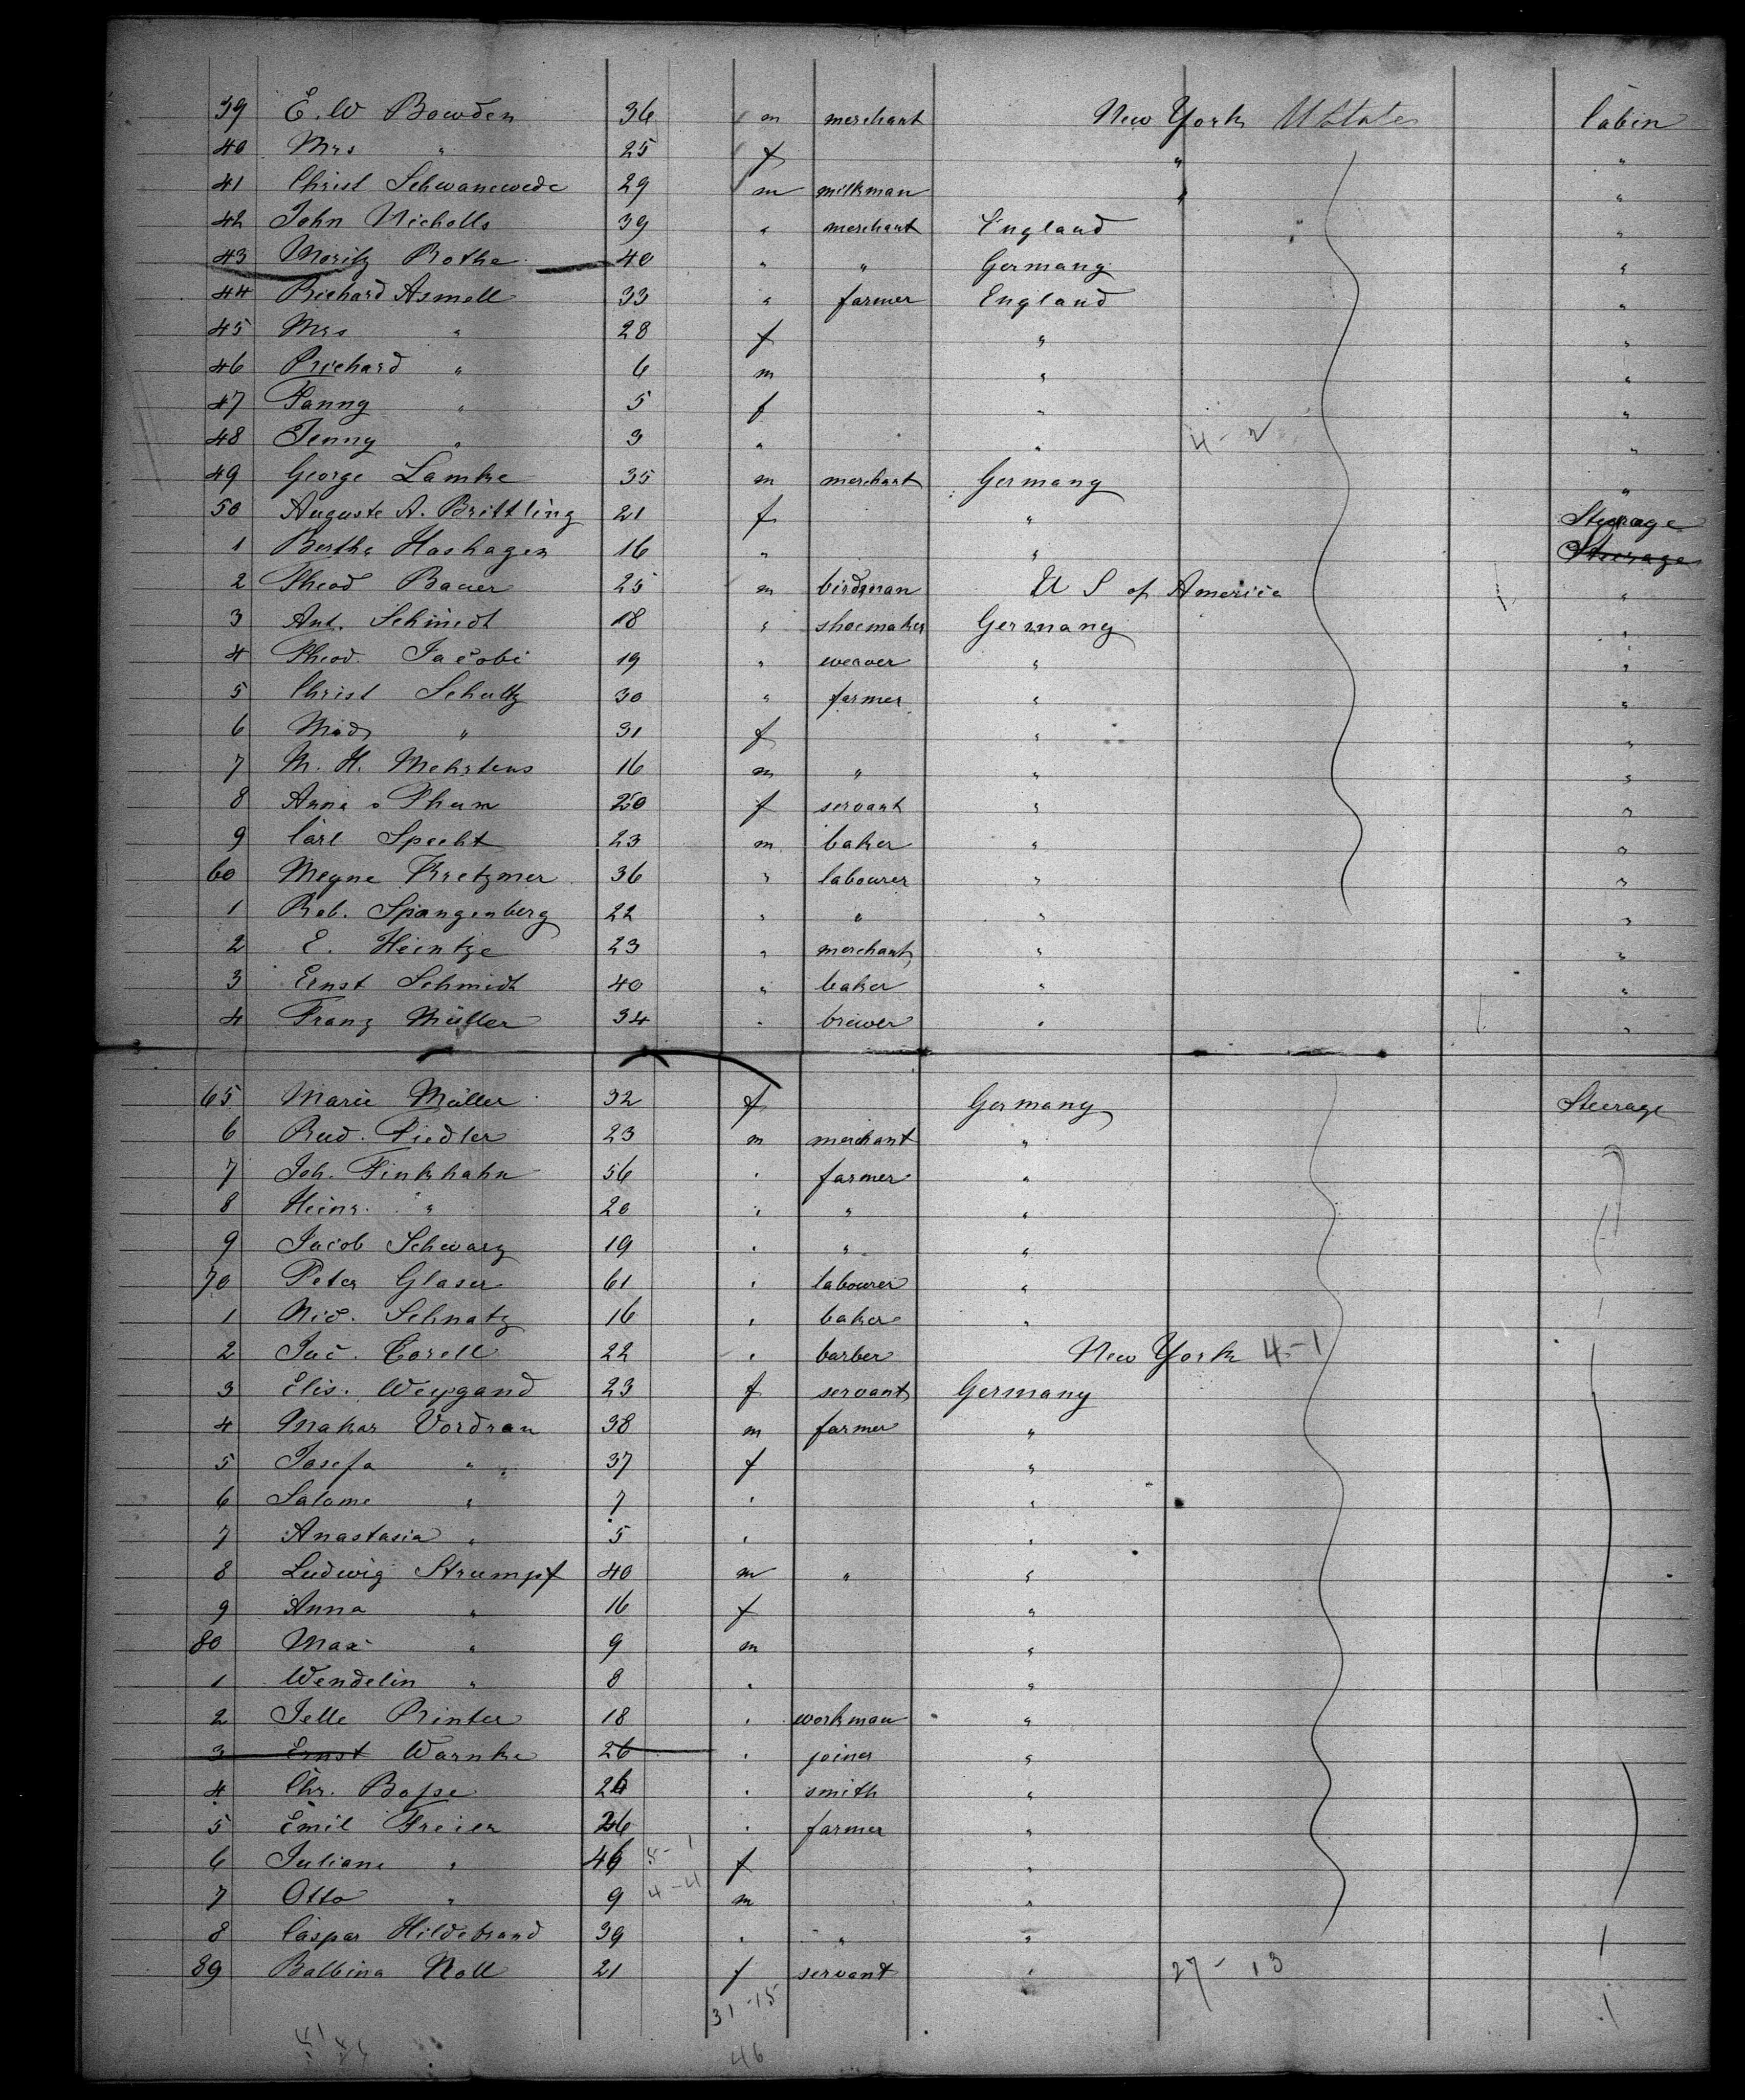 39 E. W Bowden 36 m merchant New York U State Cabin
40 Mrs " 25 f " "
41 Christ Schwanewede 29 m milkman " "
42 John Nicholls 39 " merchant England "
43 Moritz Rothe 40 " " Germany "
44 Richard Asmell 33 " farmer England "
45 Mrs " 28 f " "
46 Richard " 6 m " "
47 Fanny " 5 f " "
48 Jenny " 3 " " 4-2 "
49 George Lamke 35 m merchant Germany "
50 Auguste A. Brittling 21 f " Steerage
1 Bertha Hashagen 16 " " Steerage
2 Theod Bauer 25 m birdman U S of America "
3 Ant. Schmidt 18 " shoemaker Germany "
4 Theod. Jacobi 19 " weaver " "
5 Christ Schultz 30 " farmer " "
6 Mad " 31 f " "
7 M. H. Mehrtens 16 m " " "
8 Anna Thum 20 f servant " "
9 Carl Specht 23 m baker " "
60 Meyne Kretzmer 36 " labourer " "
1 Rob. Spangenberg 22 " " " "
2 E. Heintze 23 " merchant " "
3 Ernst Schmidt 40 " baker " "
4 Franz Müller 34 " brewer " "
65 Marie Müller 32 f Germany Steerage
6 Rud. Fiedler 23 m merchant "
7 Joh. Finkhahn 56 " farmer "
8 Heinr. " 20 " " "
9 Jacob Schwarz 19 " " "
70 Peter Glaser 61 " labourer "
1 Nic. Schnatz 16 " baker "
2 Jac. Corell 22 " barber New York 4-1
3 Elis. Weygand 23 f servant Germany
4 Makar Vordran 38 m farmer "
5 Josefa " 37 f "
6 Salome " 7 " "
7 Anastasia " 5 " "
8 Ludwig Strumpf 40 m " "
9 Anna " 16 f "
80 Max " 9 m "
1 Wendelin " 8 " "
2 Jelle Rinter 18 " workman "
3 Ernst Warnke 26 " joiner "
4 Chr. Bosse 26 " smith "
5 Emil Freier 26 " farmer "
6 Juliane " 46 f "
7 Otto " 9 4-4 m "
8 Caspar Hildebrand 39 " " "
89 Balbina Noll 21 f servant " 27-13
31-15
46